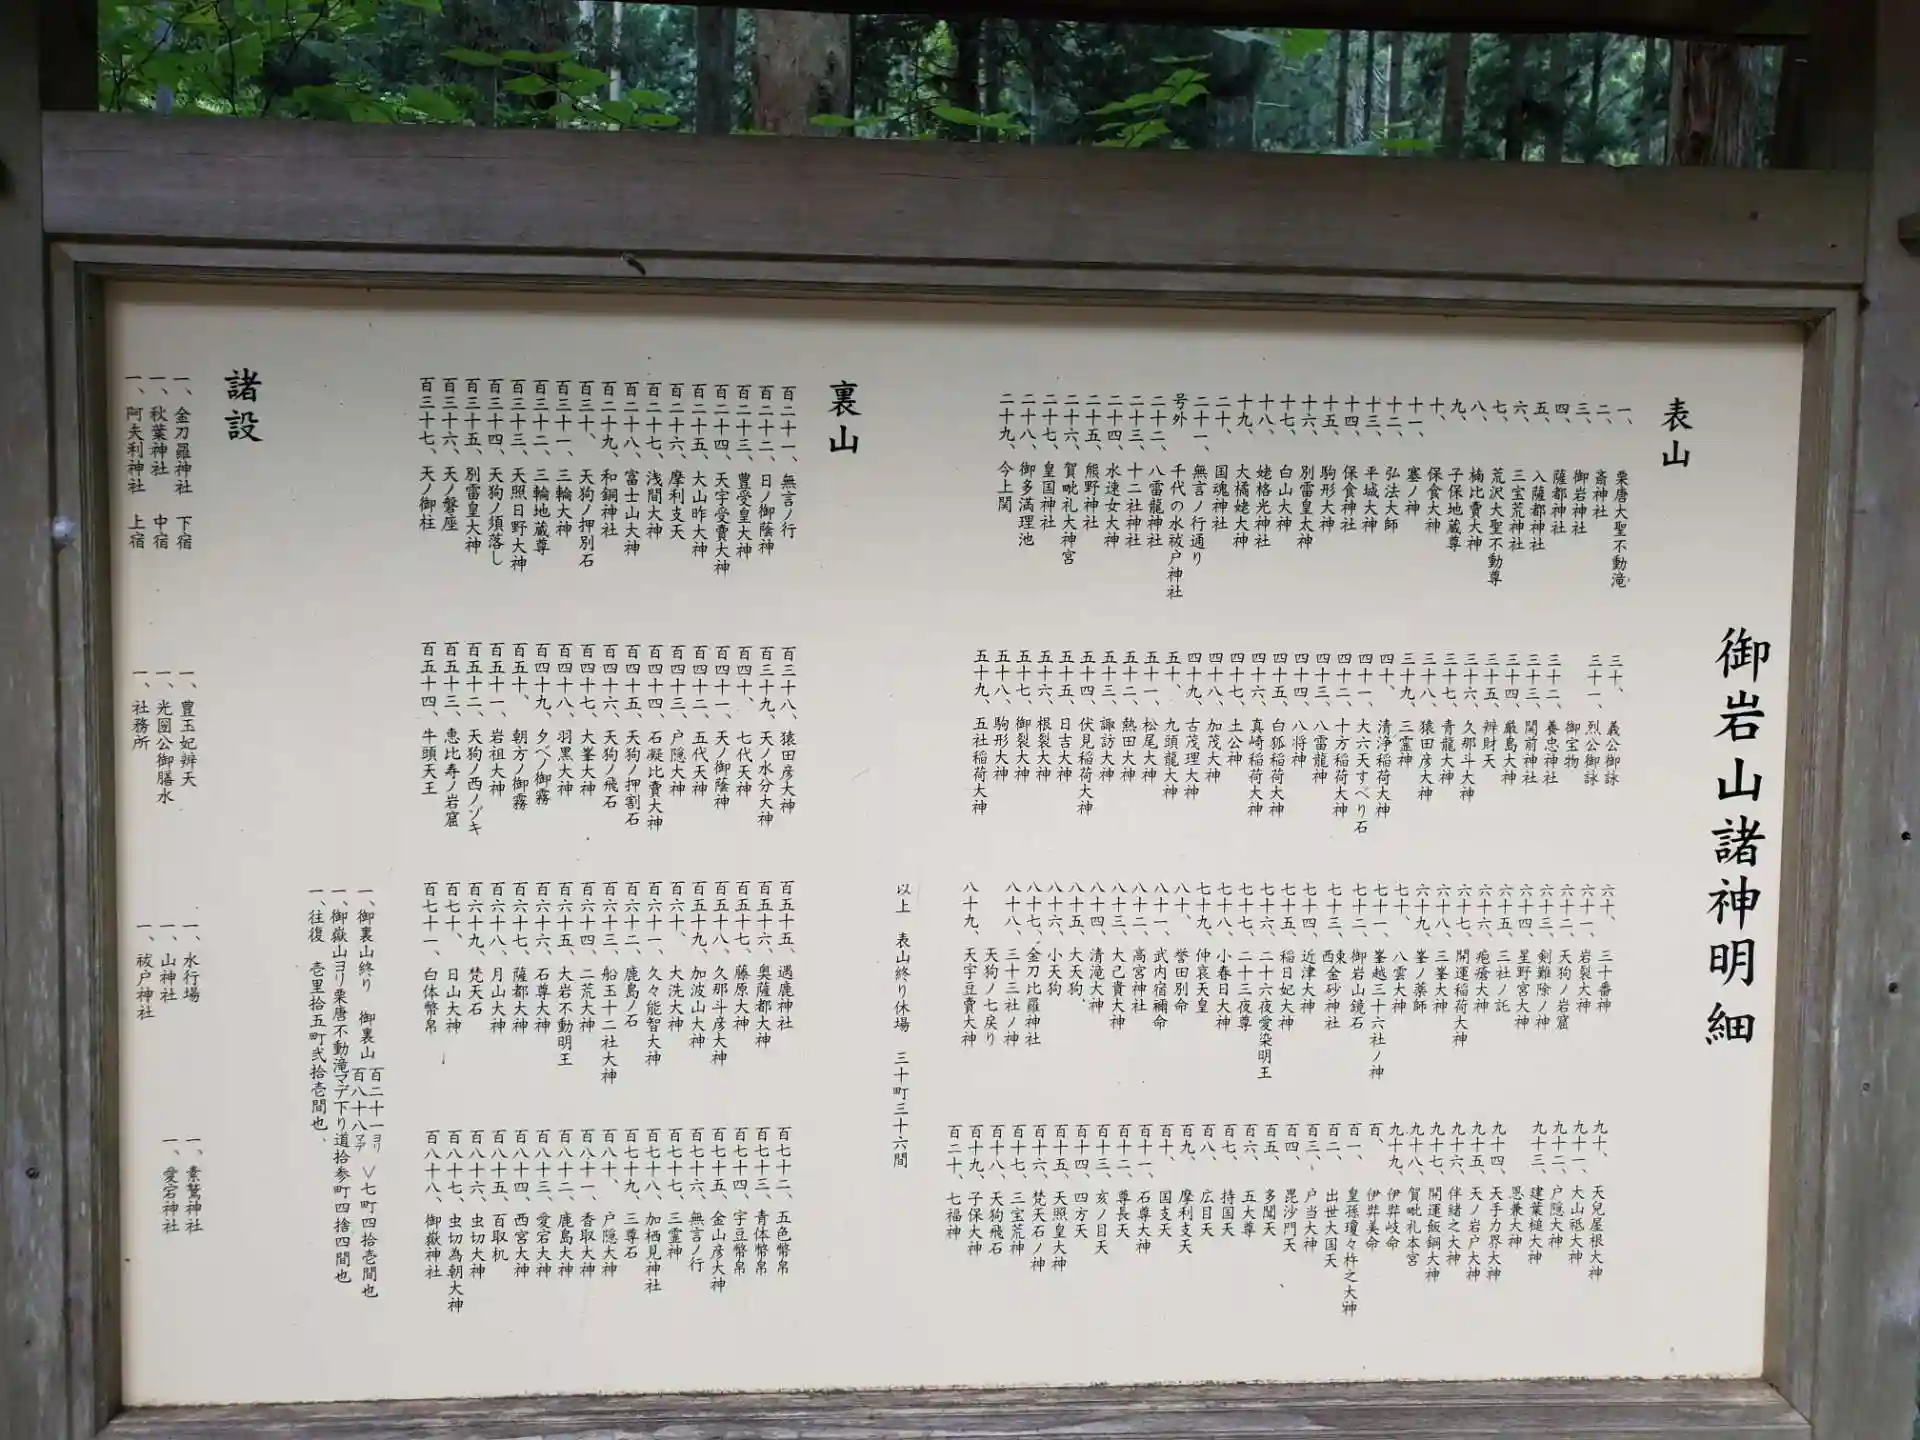 御岩山諸神明細
表山
一、栗唐大聖不動滝
二、斎神社
三、御岩神社
四、薩都神社
五、入薩都神社
六、三宝荒神社
七、荒沢大聖不動尊
八、楠比賣大神
九、子保地蔵尊
十、保食大神
十一、塞ノ神
十二、弘法大師
十三、平城大神
十四、保食神社
十五、駒形大神
十六、別雷皇太神
十七、白山大神
十八、姥格光神社
十九、大橘姥大神
二十、国魂神社
二十一、無言ノ行通り
号外 千代の水祓戸神社
二十二、八雷龍神社
二十三、十二社神社
二十四、水速女大神
二十五、熊野神社
二十六、賀毗礼大神宮
二十七、皇国神社
二十八、御多満理池
二十九、今上関
三十、義公御詠
三十一、烈公御詠
御宝物
三十二、養忠神社
三十三、関前神社
三十四、厳島大神
三十五、辨財天
三十六、久那斗大神
三十七、青龍大神
三十八、猿田彦大神
三十九、三霊神
四十、清浄稲荷大神
四十一、大六天すべり石
四十二、十方稲荷大神
四十三、八雷龍神
四十四、八将神
四十五、白狐稲荷大神
四十六、真崎稲荷大神
四十七、土公神
四十八、加茂大神
四十九、古茂理大神
五十、九頭龍大神
五十一、松尾大神
五十二、熱田大神
五十三、諏訪大神
五十四、伏見稲荷大神
五十五、日吉大神
五十六、根裂大神
五十七、御裂大神
五十八、駒形大神
五十九、五社稲荷大神
六十、三十番神
六十一、岩裂大神
六十二、天狗ノ岩窟
六十三、剣難除ノ神
六十四、星野宮大神
六十五、三社ノ託
六十六、疱瘡大神
六十七、開運稲荷大神
六十八、三峯大神
六十九、峯ノ薬師
七十、八雲大神
七十一、峯越三十六社ノ神
七十二、御岩山鏡石
七十三、東西金砂神社
七十四、近津大神
七十五、稲日妃大神
七十六、二十六夜愛染明王
七十七、二十三夜尊
七十八、小春日大神
七十九、仲哀天皇
八十、誉田別命
八十一、武内宿禰命
八十二、高宮神社
八十三、大己貴大神
八十四、清滝大神
八十五、大天狗、
八十六、小天狗
八十七、金刀比羅神社
八十八、三十三社ノ神
天狗ノ七戻り
八十九、天宇豆賣大神
九十、天兒屋根大神
九十一、大山祗大神
九十二、戸隠大神
九十三、建葉槌大神
思兼大神
九十四、天手力界大神
九十五、天ノ岩戸大神
九十六、伴緒之大神
九十七、開運飯鋼大神
九十八、賀毗礼本宮
九十九、伊弉岐命
百、伊弉美命
百一、皇孫瓊々杵之大神
百二、出世大国天
百三、戸当大神
百四、毘沙門天
百五、多聞天
百六、五大尊
百七、持国天
百八、広目天
百九、摩利支天
百十、国支天
百十一、石尊大神
百十二、尊長天
百十三、亥ノ目天
百十四、四方天
百十五、天照皇大神
百十六、梵天石ノ神
百十七、三宝荒神
百十八、天狗飛石
百十九、子保大神
百二十、七福神
以上 表山終り休場 三十町三十六間
裏山
百二十一、無言ノ行
百二十二、日ノ御蔭神
百二十三、豊受皇大神
百二十四、天宇受賣大神
百二十五、大山昨大神
百二十六、摩利支天
百二十七、浅間大神
百二十八、富士山大神
百二十九、和銅神社
百三十、天狗ノ押別石
百三十一、三輪大神
百三十二、三輪地蔵尊
百三十三、天照日野大神
百三十四、天狗ノ須落し
百三十五、別雷皇大神
百三十六、天ノ磐座
百三十七、天ノ御柱
百三十八、猿田彦大神
百三十九、天ノ水分大神
百四十、七代天神
百四十一、天ノ御蔭神
百四十二、五代天神
百四十三、戸隠大神
百四十四、石凝比賣大神
百四十五、天狗ノ押割石
百四十六、天狗ノ飛石
百四十七、大峯大神
百四十八、羽黒大神
百四十九、夕べノ御霧
百五十、朝方ノ御霧
百五十一、岩祖大神
百五十二、天狗ノ西ノゾキ
百五十三、恵比寿ノ岩窟
百五十四、牛頭天王
百五十五、遇鹿神社
百五十六、奥薩都大神
百五十七、藤原大神
百五十八、久那斗彦大神
百五十九、加波山大神
百六十、大洗大神
百六十一、久々能智大神
百六十二、鹿島ノ石
百六十三、船玉五十二社大神
百六十四、二荒大神
百六十五、大岩不動明王
百六十六、石尊大神
百六十七、薩都大神
百六十八、月山大神
百六十九、梵天石
百七十、日山大神
百七十一、白体幣帛
百七十二、五色幣帛
百七十三、青体幣帛
百七十四、宇豆幣帛
百七十五、金山彦大神
百七十六、無言ノ行
百七十七、三霊神
百七十八、加栖見神社
百七十九、三尊石
百八十、戸隠大神
百八十一、香取大神
百八十二、鹿島大神
百八十三、愛宕大神
百八十四、西宮大神
百八十五、百取机
百八十六、虫切大神
百八十七、虫切為朝大神
百八十八、御嶽神社
一、御裏山終り 御裏山 百二十一ヨリ百八十八マデ ＞七町四拾壱間也
一、御嶽山ヨリ栗唐不動滝マデ下り道拾参町四捨四間也
一、往復 壱里拾五町弐拾壱間也、
諸設
一、金刀羅神社 下宿
一、秋葉神社 中宿
一、阿夫利神社 上宿
一、豊玉妃辨天
一、光圀公御膳水
一、社務所
一、水行場
一、山神社
一、祓戸神社
一、素鵞神社
一、愛宕神社